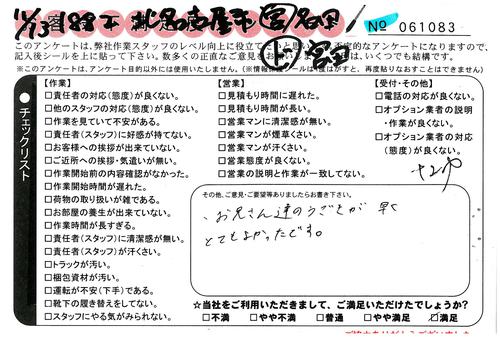 11/13
北名古屋市
No 061083
このアンケートは、弊社作業スタッフのレベル向上に役立て
定的なアンケートになりますので、
記入後シールを上に貼って下さい。数多くの正直なご意見を
いくつでも結構です。
※このアンケートは、アンケート目的以外には使用いたしません。
はがすと、再度貼りなおすことはできません)
チェックリスト
【作業】
□責任者の対応(態度)が良くない。
□他のスタッフの対応(態度)が良くない。
□作業を見ていて不安がある。
□責任者(スタッフ)に好感が持てない。
□お客様への挨拶が出来ていない。
□ご近所への挨拶・気遣いが無い。
□作業開始前の内容確認がなかった。
□作業開始時間が遅れた。
□荷物の取り扱いが雑である。
□お部屋の養生が出来ていない。
□作業時間が長すぎる。
□責任者(スタッフ)に清潔感が無い。
□責任者(スタッフ)が汗くさい。
□トラックが汚い。
□梱包資材が汚い。
□運転が不安(下手)である。
□靴下の履き替えをしてない。
□スタッフにやる気がみられない。
【営業】
□見積もり時間に遅れた。
□見積もり時間が長い。
□営業マンに清潔感が無い。
□営業マンが煙草くさい。
□営業マンが汗くさい。
□営業態度が良くない。
□営業の説明と作業が一致してない。
【受付・その他】
□電話の対応が良くない。
□オプション業者の説明
・作業が良くない。
□オプション業者の対応
(態度)が良くない。
その他、ご意見・ご要望等ありましたらお書き下さい。
、お兄さん達のうごきが 早く
とてもよかったです。
☆当社をご利用いただきまして、ご満足いただけたでしょうか?
□不満 □やや不満 □普通 □やや満足 ☑満足